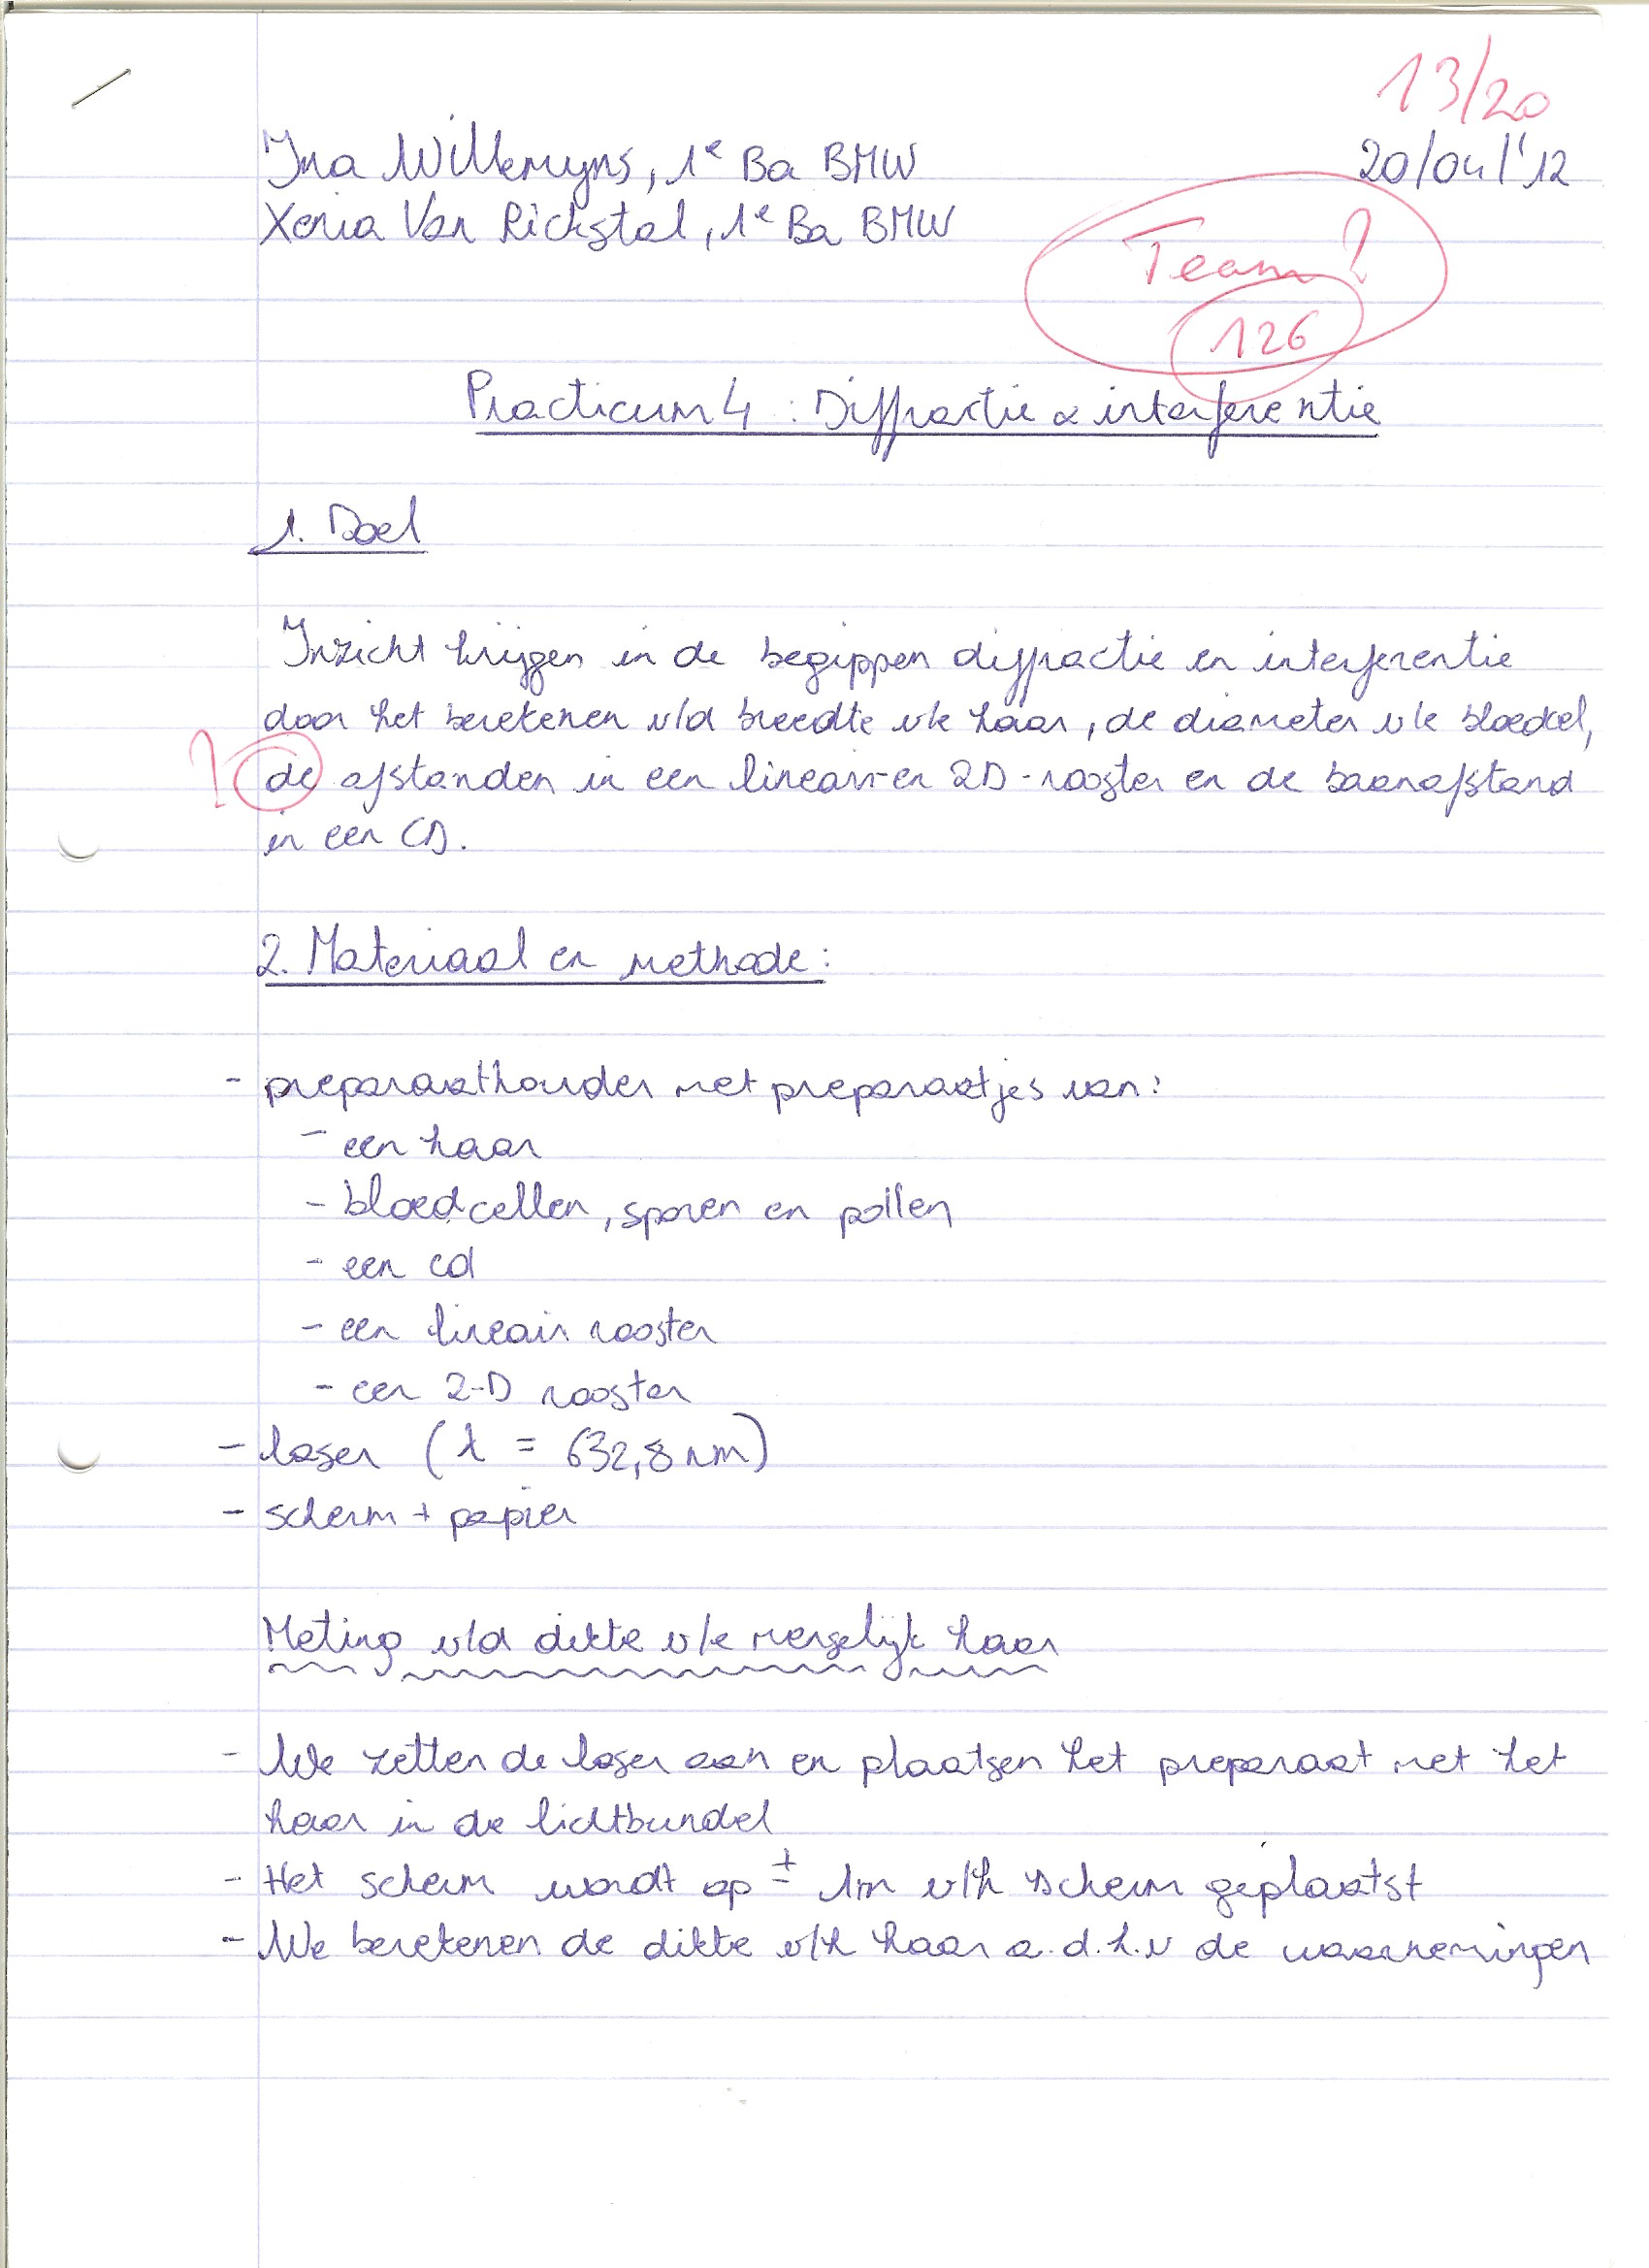 13/20
Ina Willemyns, 1e Ba BMW
20/04/'12
Xenia Van Rickstal, 1e Ba BMW
Team?
126
Practicum 4 : Diffractie & interferentie
1. Doel
Inzicht krijgen in de begrippen diffractie en interferentie
door het berekenen v/d breedte v/e haar, de diameter v/e bloedcel,
? de afstanden in een lineair- en 2D-rooster en de baanafstand
in een CD.
2. Materiaal en methode:
- preparaathouder met preparaatjes van:
- een haar
- bloedcellen, sporen en pollen
- een cd
- een lineair rooster
- een 2-D rooster
- laser (λ = 632,8 nm)
- scherm + papier
Meting v/d dikte v/e menselijk haar
- We zetten de laser aan en plaatsen het preparaat met het
haar in de lichtbundel
- Het scherm wordt op ± 1m v/h scherm geplaatst
- We berekenen de dikte v/h haar a.d.h.v de waarnemingen